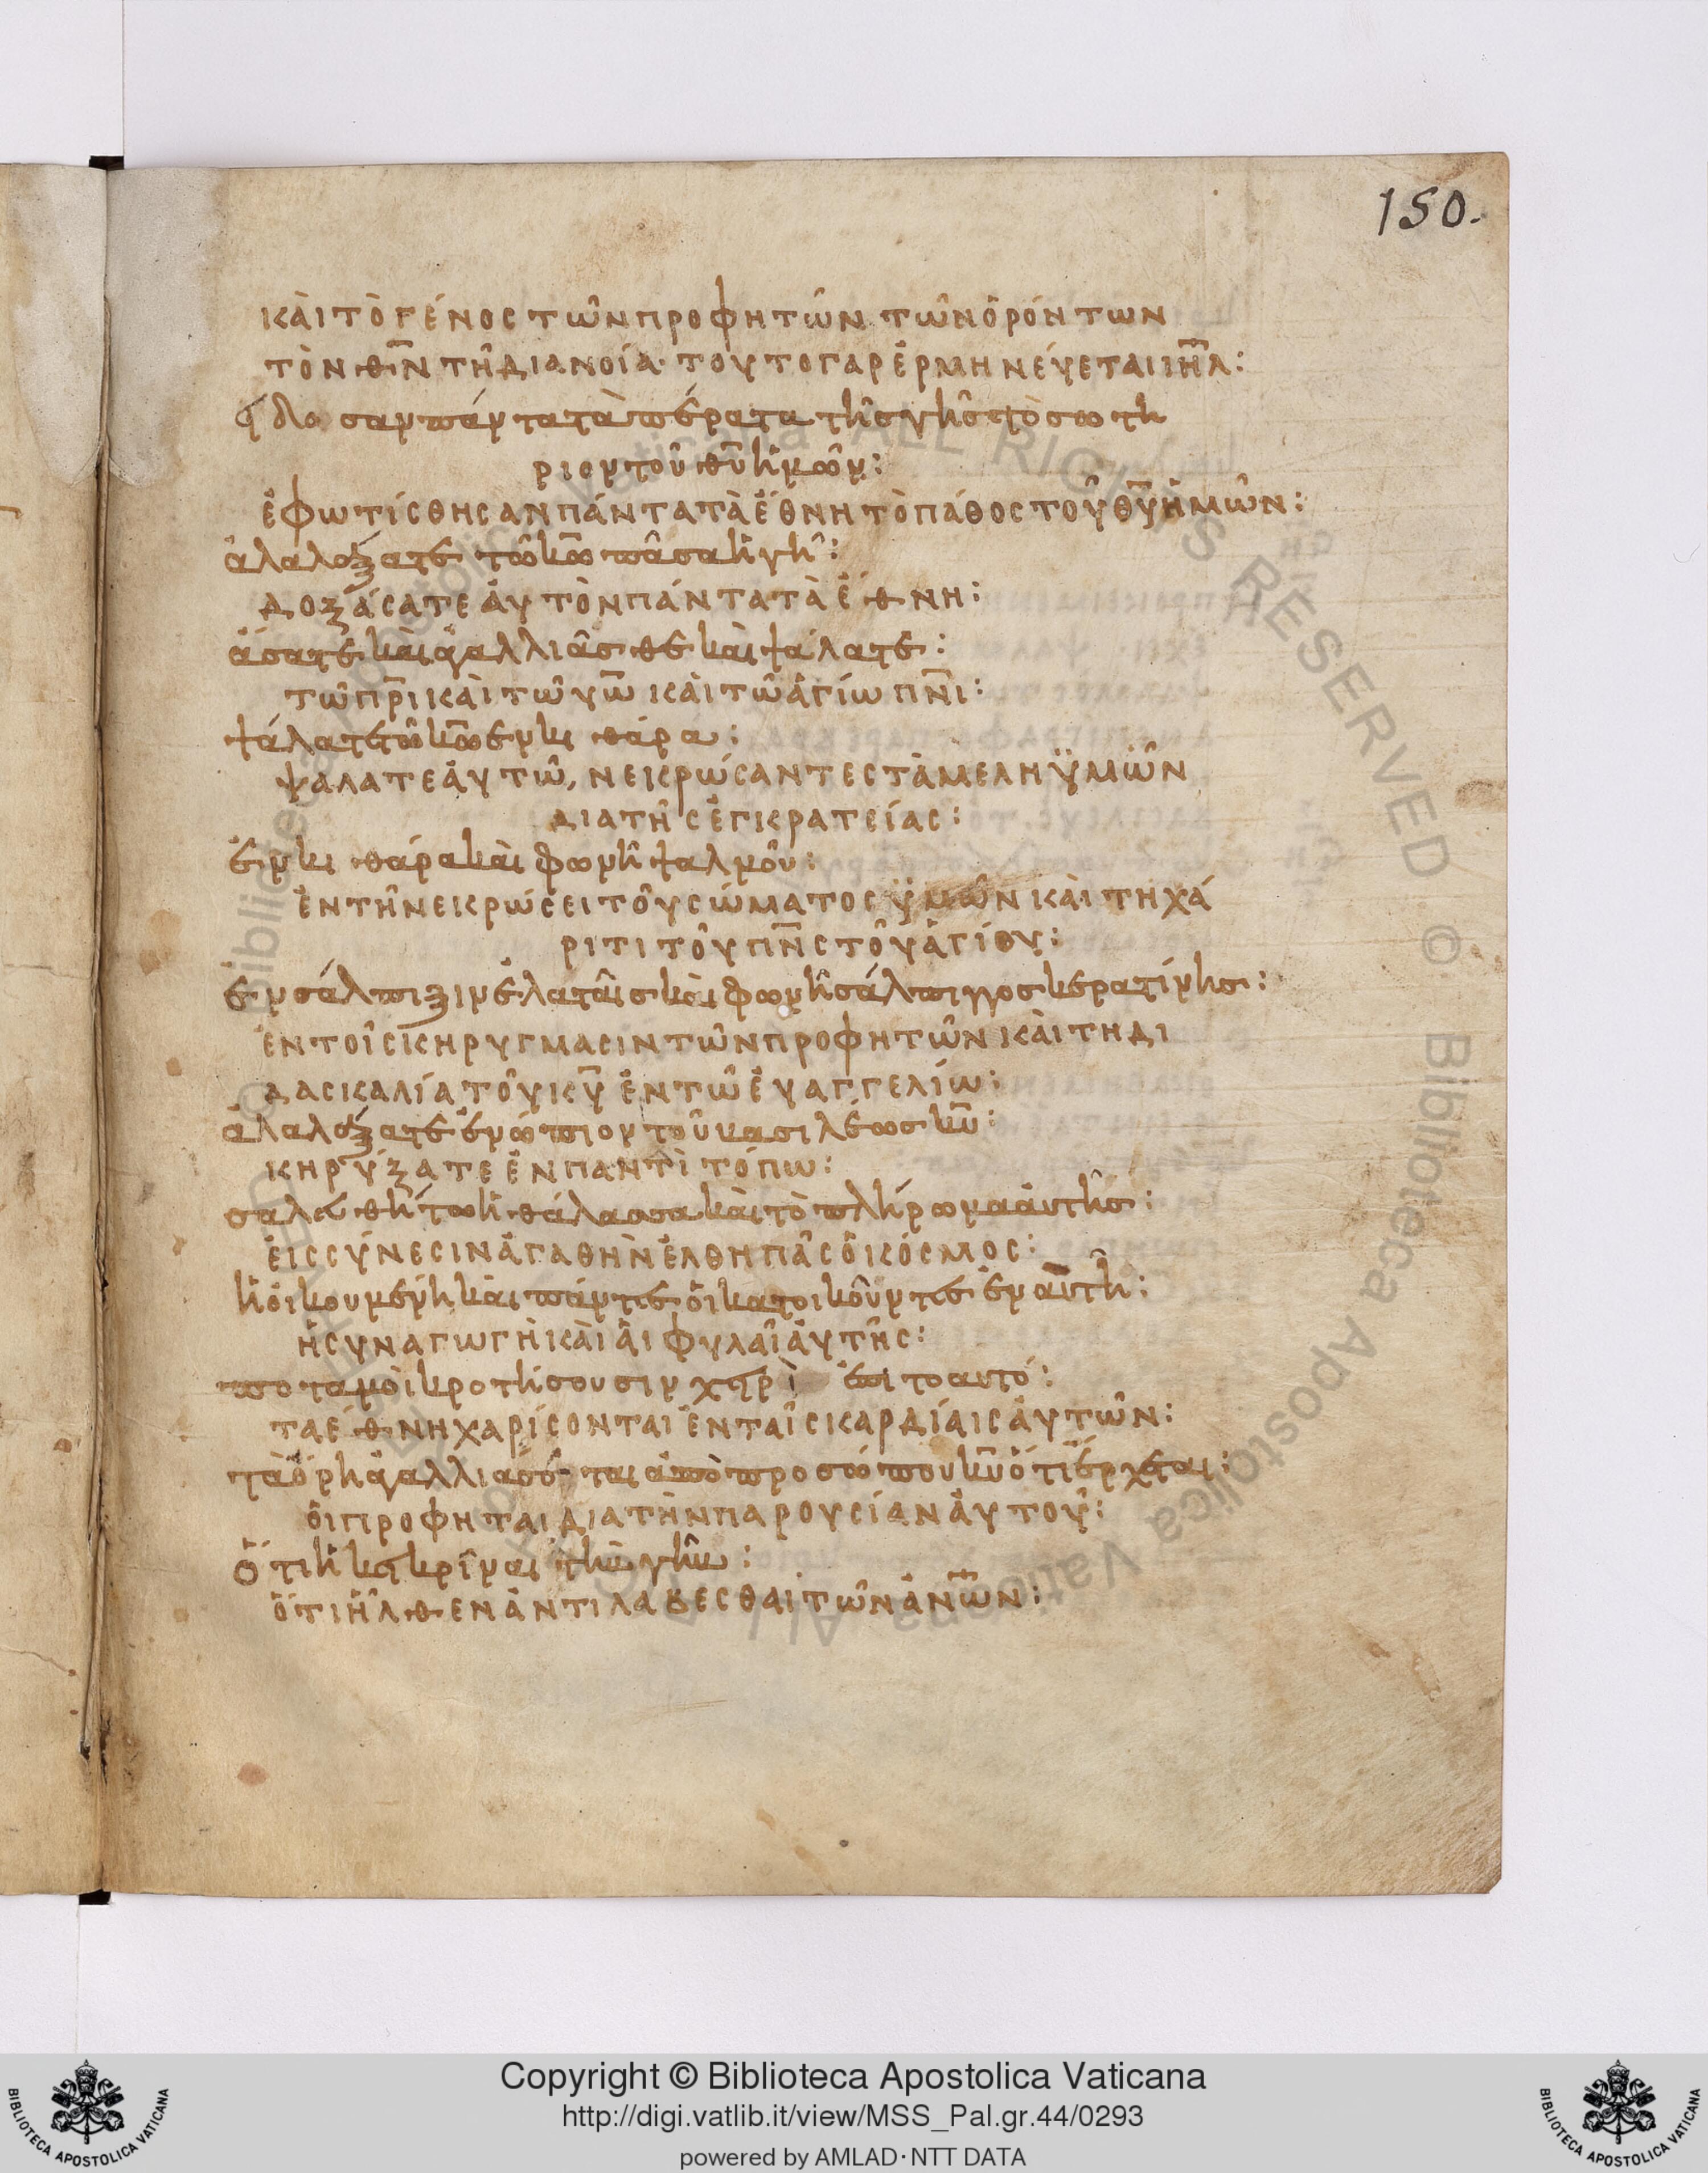 150.
κὰι τὸ γένος τῶν προφητῶν τῶν ὁρόντων
τὸν θ̅ν̅ τῆ διανοία· τοῦτο γαρ ἑρμηνέυεται ι̅η̅λ̅:
ἴδοσαν πάντα τὰ πέρατα τῆς γῆς τὸ σωτη
ριον τοῦ θ̅υ̅ ἡμῶν:
ἐφωτίσθησαν πάντα τὰ ἔθνη τὸ πάθος τοῦ θ̅υ̅ ἡμῶν:
ἀλαλάξατε τῶ κ̅ω̅ πᾶσα ἡ γῆ:
δοξάσατε ἀυτὸν πάντα τὰ ἔθνη:
ἄσατε κὰι ἀγαλλιᾶσθε κὰι ψάλατε:
τῶ π̅ρ̅ι̅ κὰι τῶ υ̅ω̅ κὰι τῶ ἁγίω π̅ν̅ι̅:
ψάλατε τῶ κ̅ω̅ ἐν κιθάρα:
ψαλατε ἀυτῶ, νεκρώσαντες τὰ μελη ὑμῶν
δια τῆς ἐγκρατείας:
ἐν κιθάρα κὰι φωνῆ ψαλμοῦ:
ἐν τῆ νεκρώσει τοῦ σώματος ὑμῶν κὰι τη χά
ριτι τοῦ π̅ν̅ς̅ τοῦ ἁγίου:
ἐν σάλπιξιν ἐλατᾶις κὰι φωνῆ σάλπιγγος κερατίνης:
ἐν τοῖς κηρυγμασιν τῶν προφητῶν κὰι τη δι
δασκαλία τοῦ κ̅υ̅ ἐν τῶ ἐυαγγελίω:
ἀλαλάξατε ἐνώπιον τοῦ βασιλέως κ̅υ̅:
κηρύξατε ἐν παντὶ τόπω:
σαλευθήτω ἡ θάλασσα κὰι τὸ πλήρωμα ἀυτῆς:
ἐις σύνεσιν ἀγαθὴν ἔλθη πᾶς ὁ κόσμος:
ἡ ὀικουμένη κὰι πάντες ὁι κατοικοῦντες ἐν αὐτῆ:
ἡ συναγωγὴ κὰι ἁι φυλαῖ ἀυτῆς:
ποταμὸι κροτήσουσιν χειρὶ ἐπιτοαυτό:
τα έθνη χαρίσονται ἐν ταῖς καρδίαις ἀυτῶν:
τὰ ὄρη ἀγαλλιάσονται ἀπὸ προσώπου κ̅υ̅ ὅτι ἔρχεται:
ὁι προφηται δια τὴν παρουσίαν ἀυτοῦ:
ὅτι ἥκει κρῖναι τὴν γῆν:
ὅτι ἦλθεν ἀντιλαβεσθαι τῶν ἀ̅ν̅ω̅ν̅:
Copyright © Biblioteca Apostolica Vaticana
http://digi.vatlib.it/view/MSS_Pal.gr.44/0293
powered by AMLAD·NTT DATA